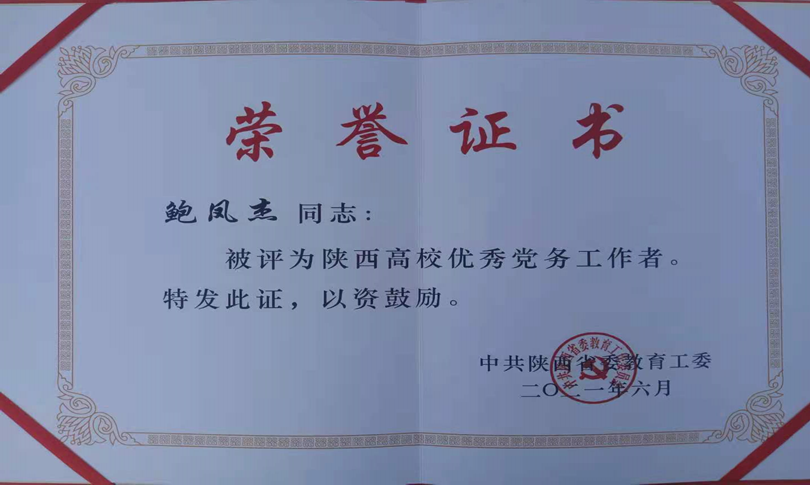 荣誉证书
鲍凤杰 同志：
被评为陕西高校优秀党务工作者。
特发此证，以资鼓励。
中共陕西省委教育工委
二〇二一年六月